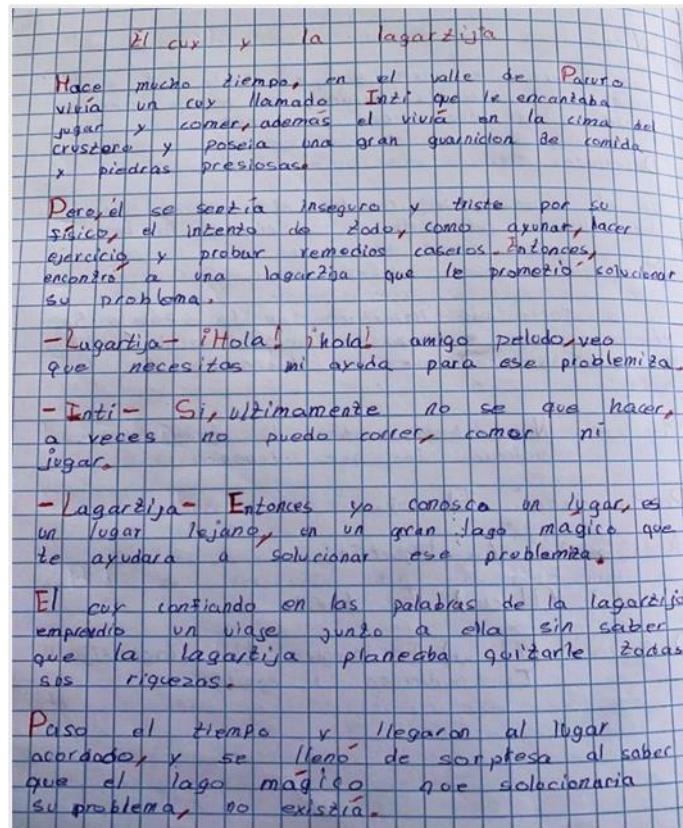 El cuy y la lagartija
Hace mucho tiempo, en el valle de Paruro
vivía un cuy llamado Inti que le encantaba
jugar y comer, además el vivía en la cima del
crustero y poseia una gran guarnicion de comida
y piedras presiosas.
Pero, él se sentía inseguro y triste por su
físico, el intento de todo, como ayunar, hacer
ejercicio y probar remedios caseros. Entonces,
encontró a una lagartija que le prometió solucionar
su problema.
-Lagartija- ¡Hola! ¡hola! amigo peludo, veo
que necesitas mi ayuda para ese problemita.
-Inti- Si, ultimamente no se que hacer,
a veces no puedo correr, comer ni
jugar.
-Lagartija- Entonces yo conosco un lugar, es
un lugar lejano, en un gran lago magico que
te ayudara a solucionar ese problemita.
El cuy confiando en las palabras de la lagartija
emprendio un viaje junto a ella sin saber
que la lagartija planeaba quitarle todas
sus riquezas.
Paso el tiempo y llegaron al lugar
acordado, y se llenó de sorpresa al saber
que el lago mágico que solucionaria
su problema, no existía.